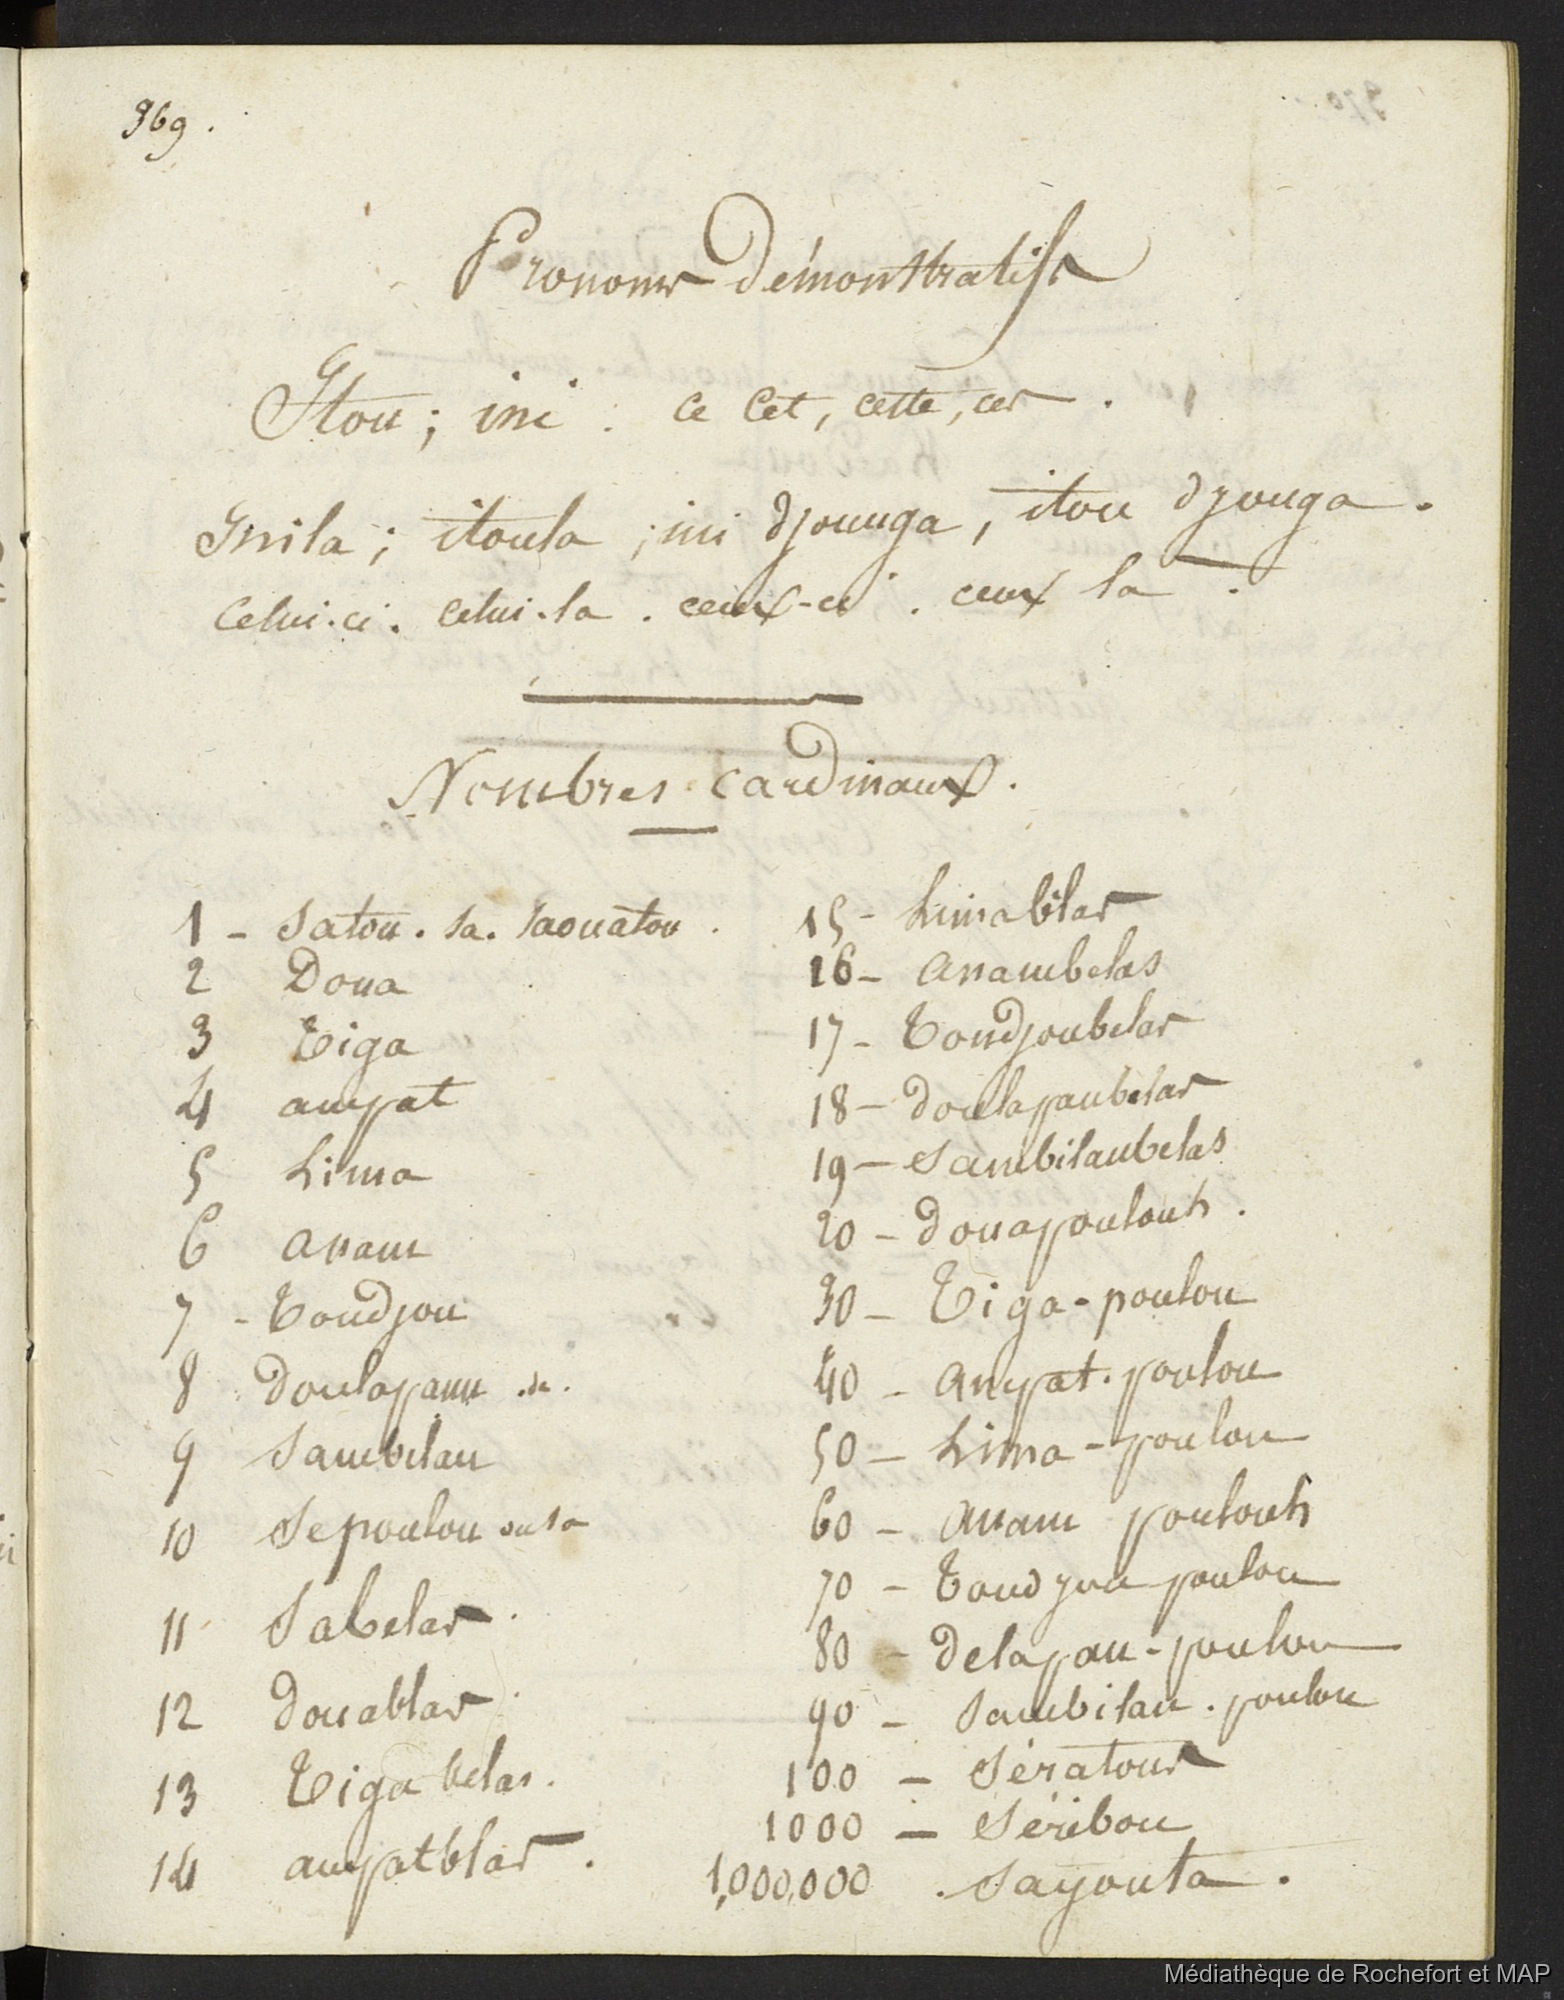 369.
Pronoms Démonstratifs
Itou; ini : ce cet, cette, ces.
Inila; itoula; ini djouuga, itou djouga.
Celui-ci. celui-la. ceux-ci. ceux la.
Nombres Cardinaux.
1 - Satou. sa. saouatou.
2 Doua
3 Tiga
4 ampat
5 Lima
6 anam
7 - Toudjou
8 Doulapann
9 Sambilan
10 Sepoulou ou sa
11 Sabelas.
12 Douablas.
13 Tiga belas.
14 ampatblas.
15 - Limablas
16 - anambelas
17 - Toudjoubelas
18 - Doulapanbelas
19 - Sambilanbelas
20 - Douapoulouh.
30 - Tiga-poulou
40 - ampat-poulou
50 - Lima-poulou
60 - anam poulouh
70 - Toudjou poulou
80 - Delapan-poulou
90 - Sambilan-poulou
100 - Sératous
1000 - Séribou
1,000,000 . Sayouta.
Médiathèque de Rochefort et MAP